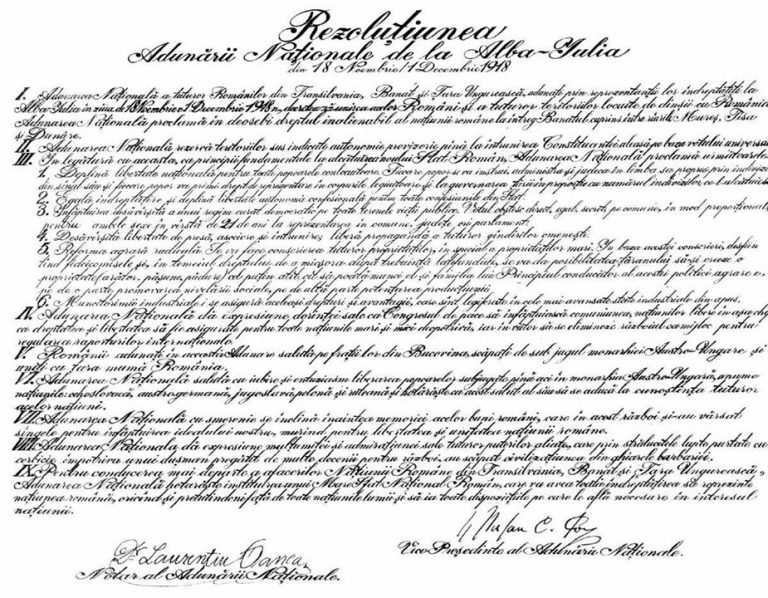 Rezoluțiunea
Adunării Naționale de la Alba-Iulia
din 18 Noembrie/1 Decembrie 1918
I. Adunarea Națională a tuturor Românilor din Transilvania, Banat și Țara Ungurească, adunați prin reprezentanții lor îndreptățiți la
Alba-Iulia în ziua de 18 Noembrie/1 Decembrie 1918, decretează unirea acelor Români și a tuturor teritoriilor locuite de dînșii cu România.
Adunarea Națională proclamă îndeosebi dreptul inalienabil al națiunii române la întreg Banatul cuprins între rîurile Mureș, Tisa
și Dunăre.
II. Adunarea Națională rezervă teritoriilor sus indicate autonomie provizorie pînă la întrunirea Constituantei aleasă pe baza votului universal
III. In legătură cu aceasta, ca principii fundamentale la alcătuirea noului Stat Român, Adunarea Națională proclamă următoarele:
1. Deplină libertate națională pentru toate popoarele conlocuitoare. Fiecare popor se va instrui, administra și judeca în limba sa proprie prin indivizi
din sînul său și fiecare popor va primi drept de reprezentare în corpurile legiuitoare și la guvernarea țării în proporție cu numărul indivizilor ce-l
2. Egală îndreptățire și deplină libertate autonomă confesională pentru toate confesiunile din Stat.
3. Înfăptuirea desăvîrșită a unui regim curat democratic pe toate terenele vieții publice. Votul obștesc, direct, egal, secret, pe comune, în mod proporțional,
pentru ambele sexe în vîrstă de 21 de ani la reprezentarea în comune, județe ori parlament.
4. Desăvîrșită libertate de presă, asociere și întrunire; liberă propagandă a tuturor gîndirilor omenești.
5. Reforma agrară radicală. Se va face conscrierea tuturor proprietăților, în special a proprietăților mari. In baza acestei conscrieri, desfiin
țînd fideicomisele și, în temeiul dreptului de a micșora după trebuință latifundiile, se va da posibilitatea țăranului să-și creeze o
proprietate (arător, pășune, pădure) cel puțin atît cît să poată munci el și familia lui. Principiul conducător al acestei politici agrare e,
pe de o parte promovarea nivelării sociale, pe de altă parte potențarea producțiunii.
6. Muncitorimii industriale i se asigură aceleași drepturi și avantagii, care sînt legiferate în cele mai avansate state industriale din apus.
IV. Adunarea Națională dă expresiune dorinței sale ca Congresul de pace să înfăptuiască comuniunea națiunilor libere în așa chip
ca dreptatea și libertatea să fie asigurate pentru toate națiunile mari și mici deopotrivă, iar în viitor să se elimineze războiul ca mijloc pentru
regularea raporturilor internaționale.
V. Românii adunați în această Adunare salută pe frații lor din Bucovina, scăpați de sub jugul monarhiei Austro-Ungare și
uniți cu țara mumă România.
VI. Adunarea Națională salută cu iubire și entuziasm liberarea popoarelor subjugate pînă aci în monarhia Austro-Ungară, anume
națiunile: cehoslovacă, austro-germană, jugoslavă, polonă și ruteană și hotărăște ca acest salut al său să se aducă la cunoștința tuturor
acelor națiuni.
VII. Adunarea Națională cu smerenie se închină înaintea memoriei acelor bravi români, care în acest război și-au vărsat
sîngele pentru înfăptuirea idealului nostru, murind pentru libertatea și unitatea națiunii române.
VIII. Adunarea Națională dă expresiune mulțumirii și admirațiunei sale tuturor puterilor aliate, care prin strălucitele lupte purtate cu
cerbicie împotriva unui dușman pregătit de multe decenii pentru război, au scăpat civilizațiunea din ghiarele barbariei.
IX. Pentru conducerea mai departe a afacerilor Națiunii Române din Transilvania, Banat și Țara Ungurească,
Adunarea Națională hotărăște instituirea unui Mare Sfat Național Român, care va avea toată îndreptățirea să reprezinte
națiunea română, oricînd și pretutindeni față de toate națiunile lumii și să ia toate dispozițiile pe care le află necesare în interesul
națiunii.
Dr. Laurențiu Oanea
Notar al Adunării Naționale.
Vice Președinte al Adunării Naționale.